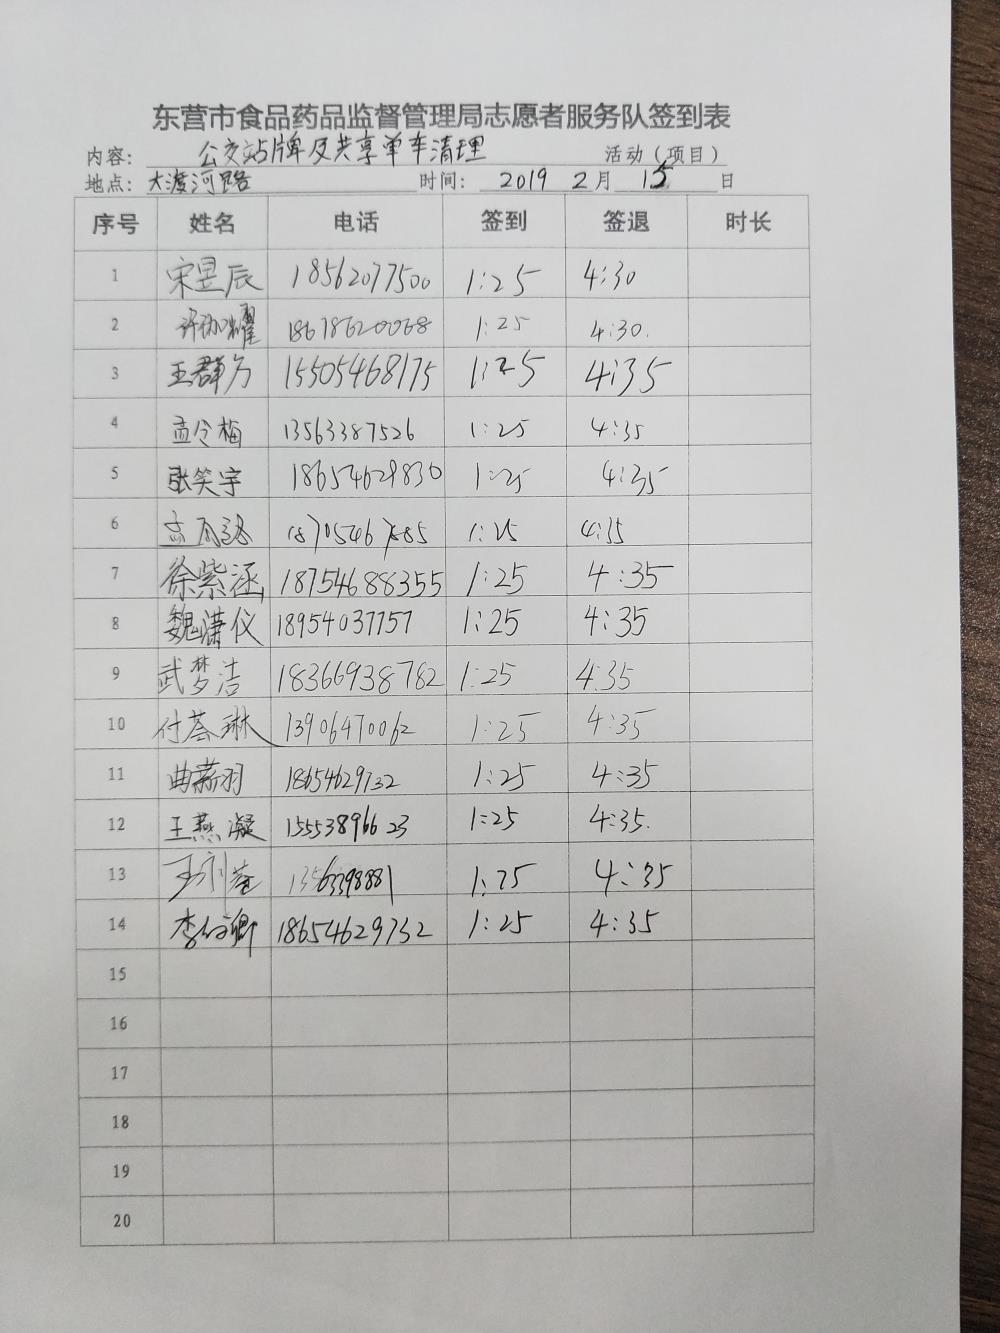 东营市食品药品监督管理局志愿者服务队签到表
内容： 公交站牌及共享单车清理 活动（项目）
地点： 大渡河路 时间： 2019 2月 15 日
序号 姓名 电话 签到 签退 时长
1 宋昱辰 18562077500 1:25 4:30
2 18678620068 1:25 4:30.
3 王群方 15505468175 1:25 4:35
4 孟令梅 13563387526 1:25 4:35
5 张笑宇 18654629830 1:25 4:35
6 1:25 4:35
7 徐紫涵 18754688355 1:25 4:35
8 魏潇仪 18954037757 1:25 4:35
9 武梦洁 18366938782 1:25 4:35
10 付荟琳 13906470062 1:25 4:35
11 曲薪羽 18654629732 1:25 4:35
12 王燕凝 15553896623 1:25 4:35.
13 1:25 4:35
14 18654629732 1:25 4:35
15
16
17
18
19
20